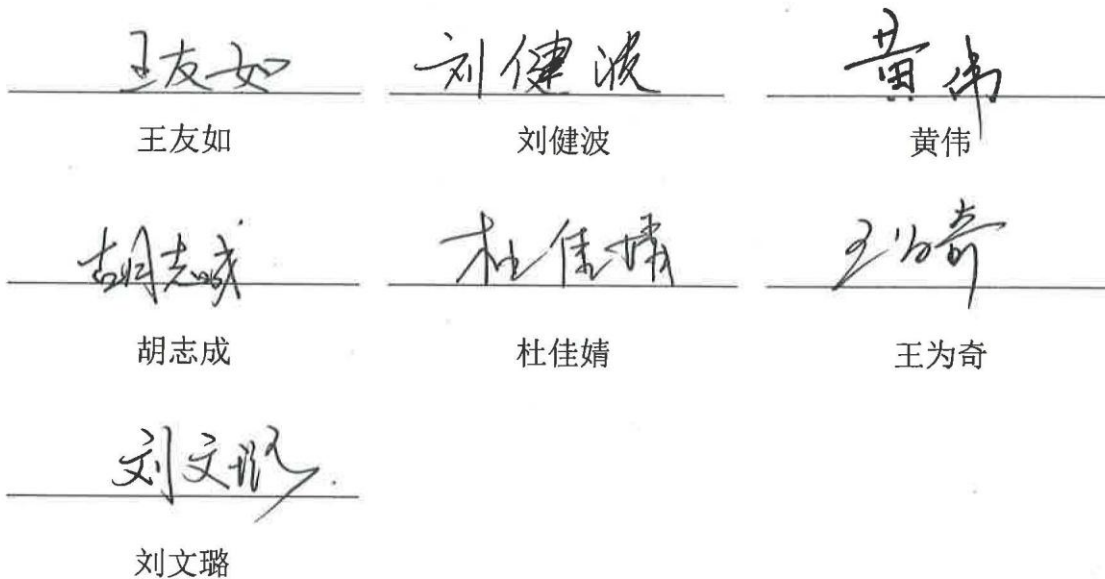 王友如 刘健波 黄伟
王友如 刘健波 黄伟
胡志成 杜佳婧 王为奇
胡志成 杜佳婧 王为奇
刘文璐
刘文璐